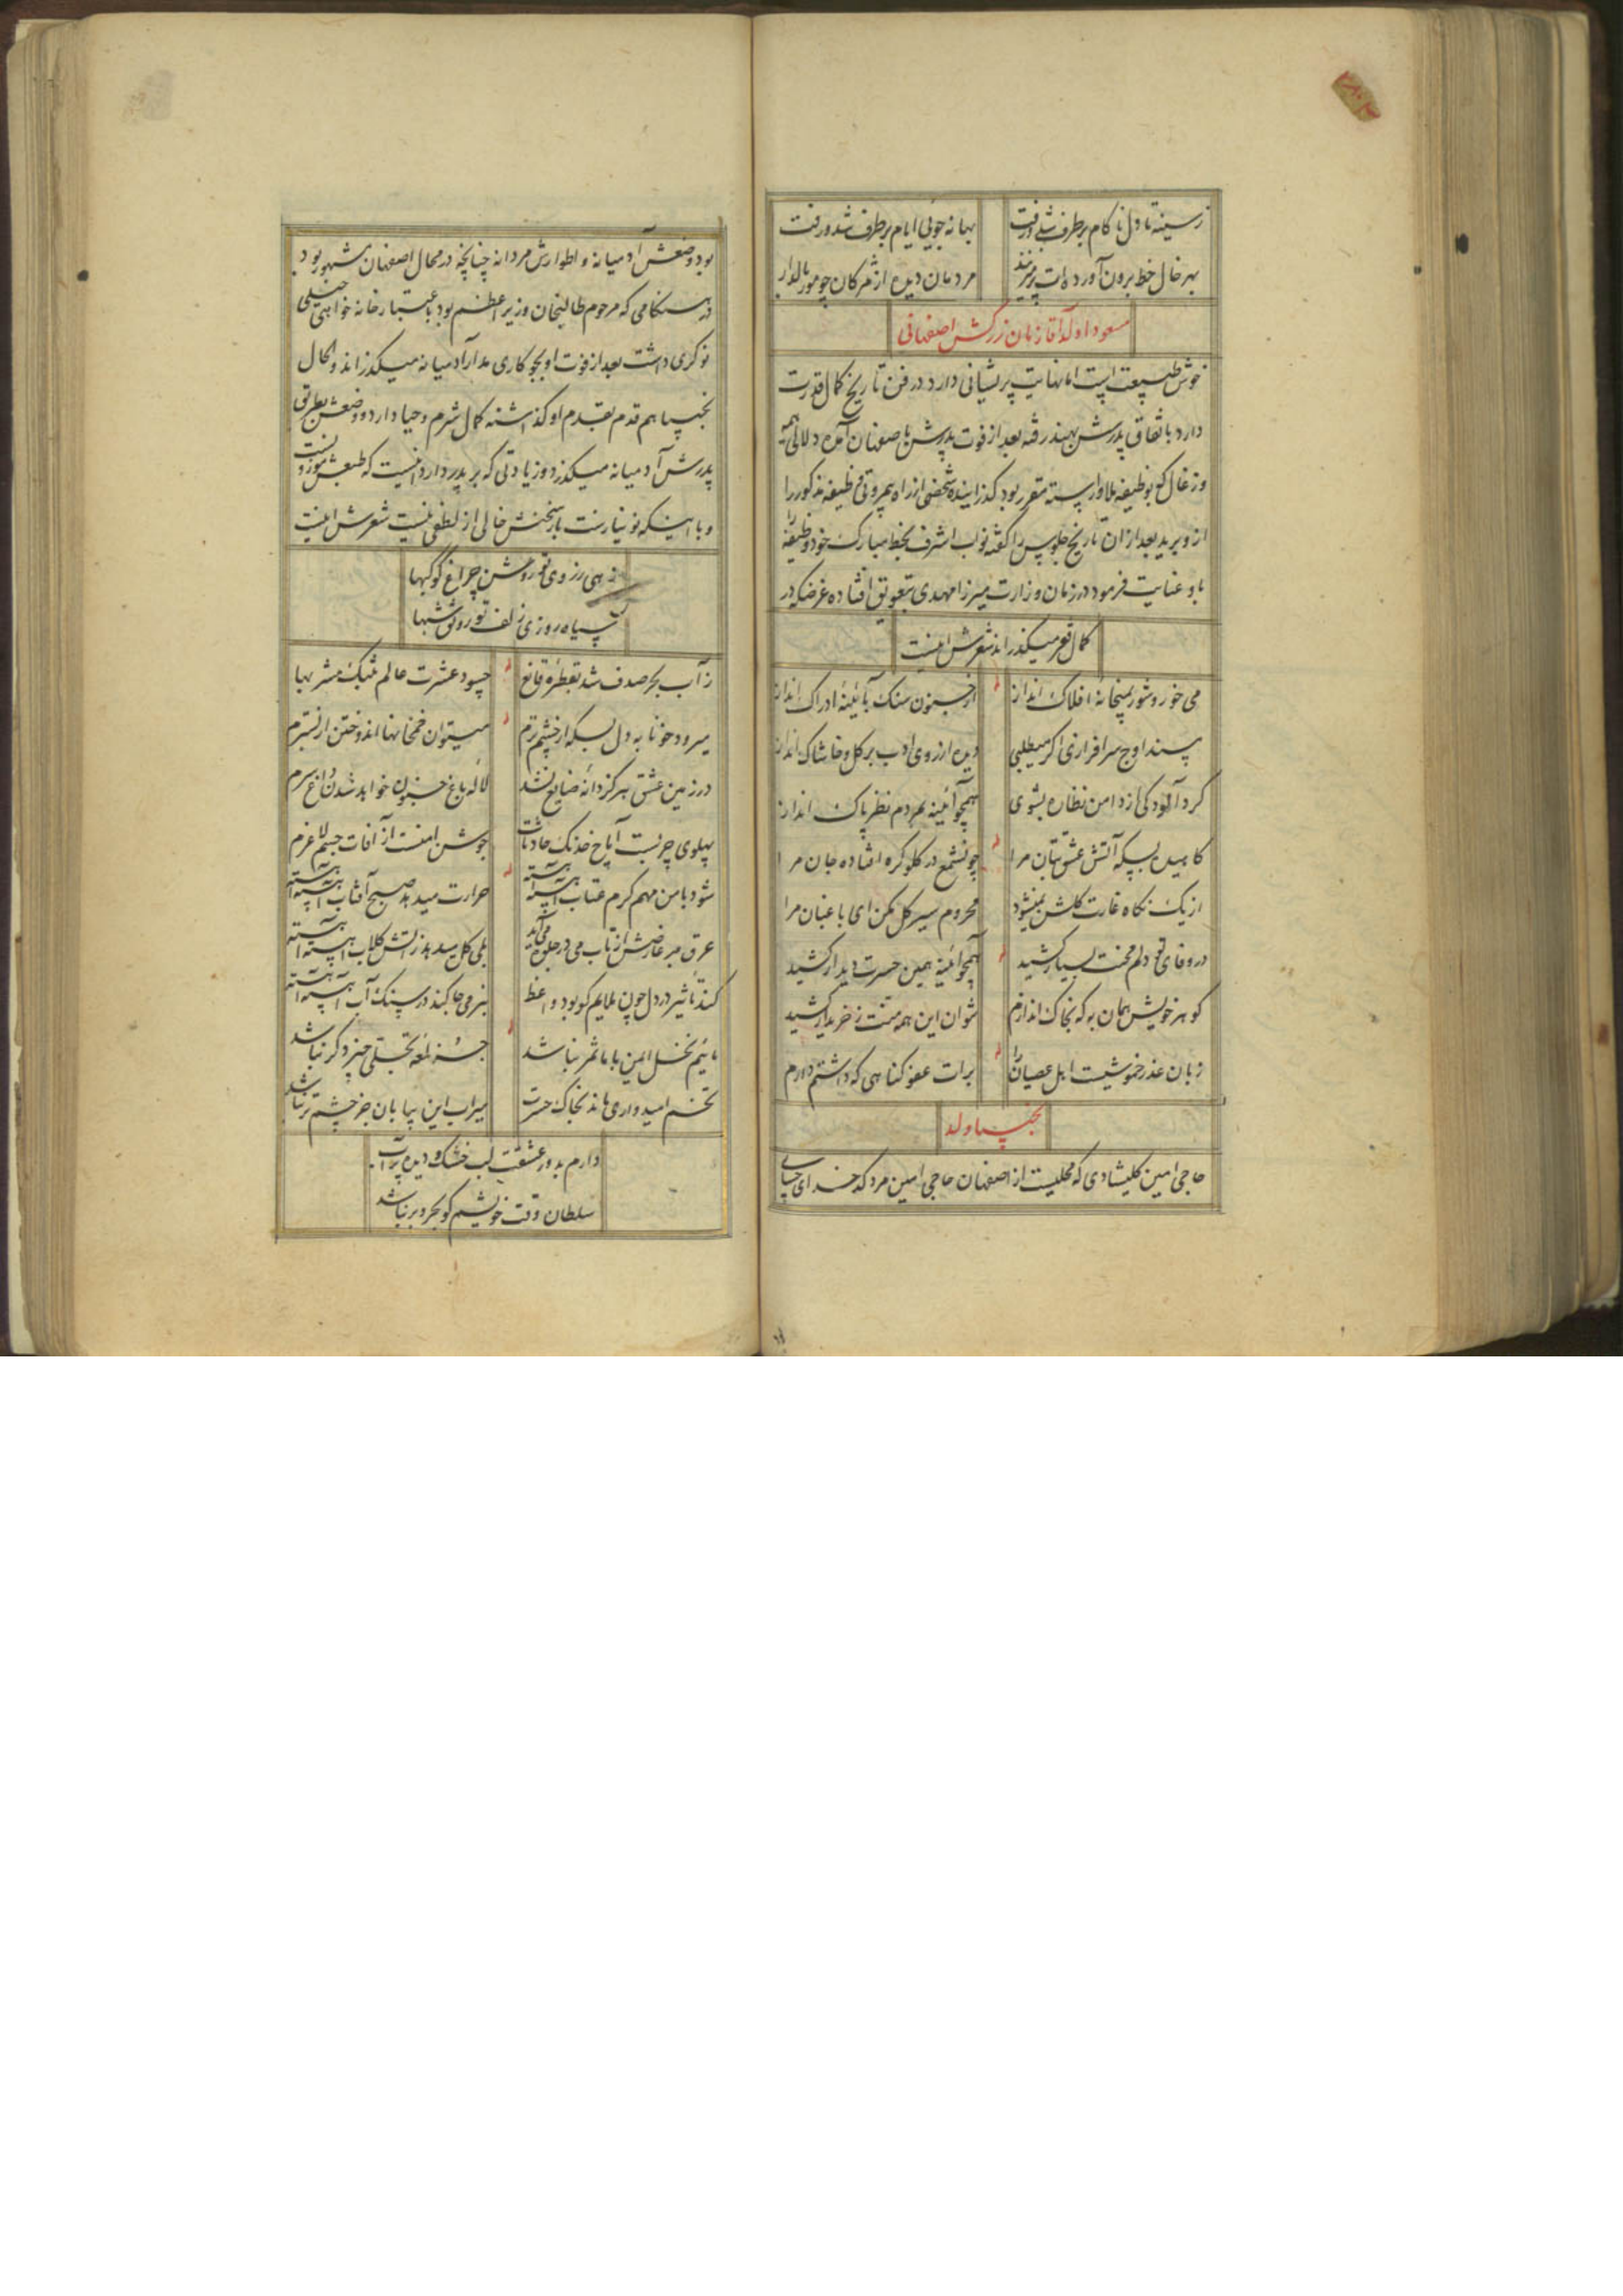 ز سینه تا دل ناکام برطرف شد و رفت بهانه جویی ایام برطرف شد و رفت
بهر خال خط برون آورده‌ات پر میزند مردمان دیده از مژگان چو مور بالدار
مسعودا ولد آقا زمان زرکش اصفهانی
خوش طبیعت است اما نهایت پریشانی دارد در فن تاریخ کمال قدرت
دارد باتفاق پدرش بهند رفته بعد از فوت پدرش باصفهان آمده دلالی هیمه
و زغال که بوظیفه ملا وارسته مقرر بود گذراینده شخصی از راه بیمروتی وظیفه مذکور را
ازو برید بعد از ان تاریخ جلوس را گفته نواب اشرف بخط مبارک خود وظیفه را
باو عنایت فرمود در زمان وزارت میرزا مهدی بتعویق افتاده غرضکه در
کمال فقر میگذراند شعرش اینست
می خور و شور بمیخانه افلاک انداز از جنون سنک بآئینه ادراک انداز
پسند اوج سرافرازی اگر میطلبی دیده از روی ادب بر کل و خاشاک انداز
کرد آلودکی از دامن نظاره بشوی همچو آئینه بمردم نظر پاک انداز
کاهیده بسکه آتش عشق بتان مرا چون شمع در کلو کره افتاده جان مرا
از یک نکاه غارت کلشن نمیشود محروم سیر کل مکن ای باغبان مرا
در وفای تو دلم محنت بسیار کشید همچو آئینه همین حسرت دیدار کشید
کوهر خویش همان به که بخاک اندازم نتوان این همه منت ز خریدار کشید
زبان عذر خموشیست اهل عصیان را برات عفو کناهی که داشتم دارم
نجیبا ولد
حاجی امین کلیشادی که محلیست از اصفهان حاجی امین مرد کدخدای
بود وضعش آدمیانه و اطوارش مردانه چنانچه در محال اصفهان مشهور بود
در هنکامی که مرحوم طالبخان وزیر اعظم بود باعتبار خانه خواهی خیلی
نوکری داشت بعد از فوت او بجو کاری مدار آدمیانه میکذراند والحال
نجیبا هم قدم بقدم او کذاشته کمال شرم و حیا دارد و وضعش بطریق
پدرش آدمیانه میکذرد و زیادتی که بر پدر دارد اینست که طبعش موزونست
و با اینکه نو نیازست باز سخنش خالی از لطفی نیست شعرش اینست
زهی ز روی تو روشن چراغ کوکبها
سیاه روزی زلف تو رونق شبها
ز آب بحر صدف شد بقطره قانع چسود عشرت عالم بتنک مشربها
میرود خونابه دل بسکه از چشم ترم میتوان خمخانها اندوختن از بسترم
در زمین عشق هرکز دانه ضایع نشد لاله باغ جنون خواهد شدن داغ سرم
پهلوی چربست آماج خدنک حادثات جوشن امنست از آفات جسم لاغرم
شود با من مهم کرم عتاب آهسته آهسته حرارت میدهد صبح آفتاب آهسته آهسته
عرق بر عارضش از تاب می در جلوه می‌آید بلی کل میدهد ز آتش کلاب آهسته آهسته
کند تاثیر در دل چون ملایم کو بود واعظ بنرمی جا کند در سنک آب آهسته آهسته
مائیم نخل ایمن با ما ثمر نباشد جز لمعه تجلی چیز دکر نباشد
تخم امیدواری ماند بخاک حسرت میراب این بیابان جز چشم تر نباشد
دارم بدور عشقت لب خشک و دیده پرآب
سلطان وقت خویشم کو بحر و بر نباشد